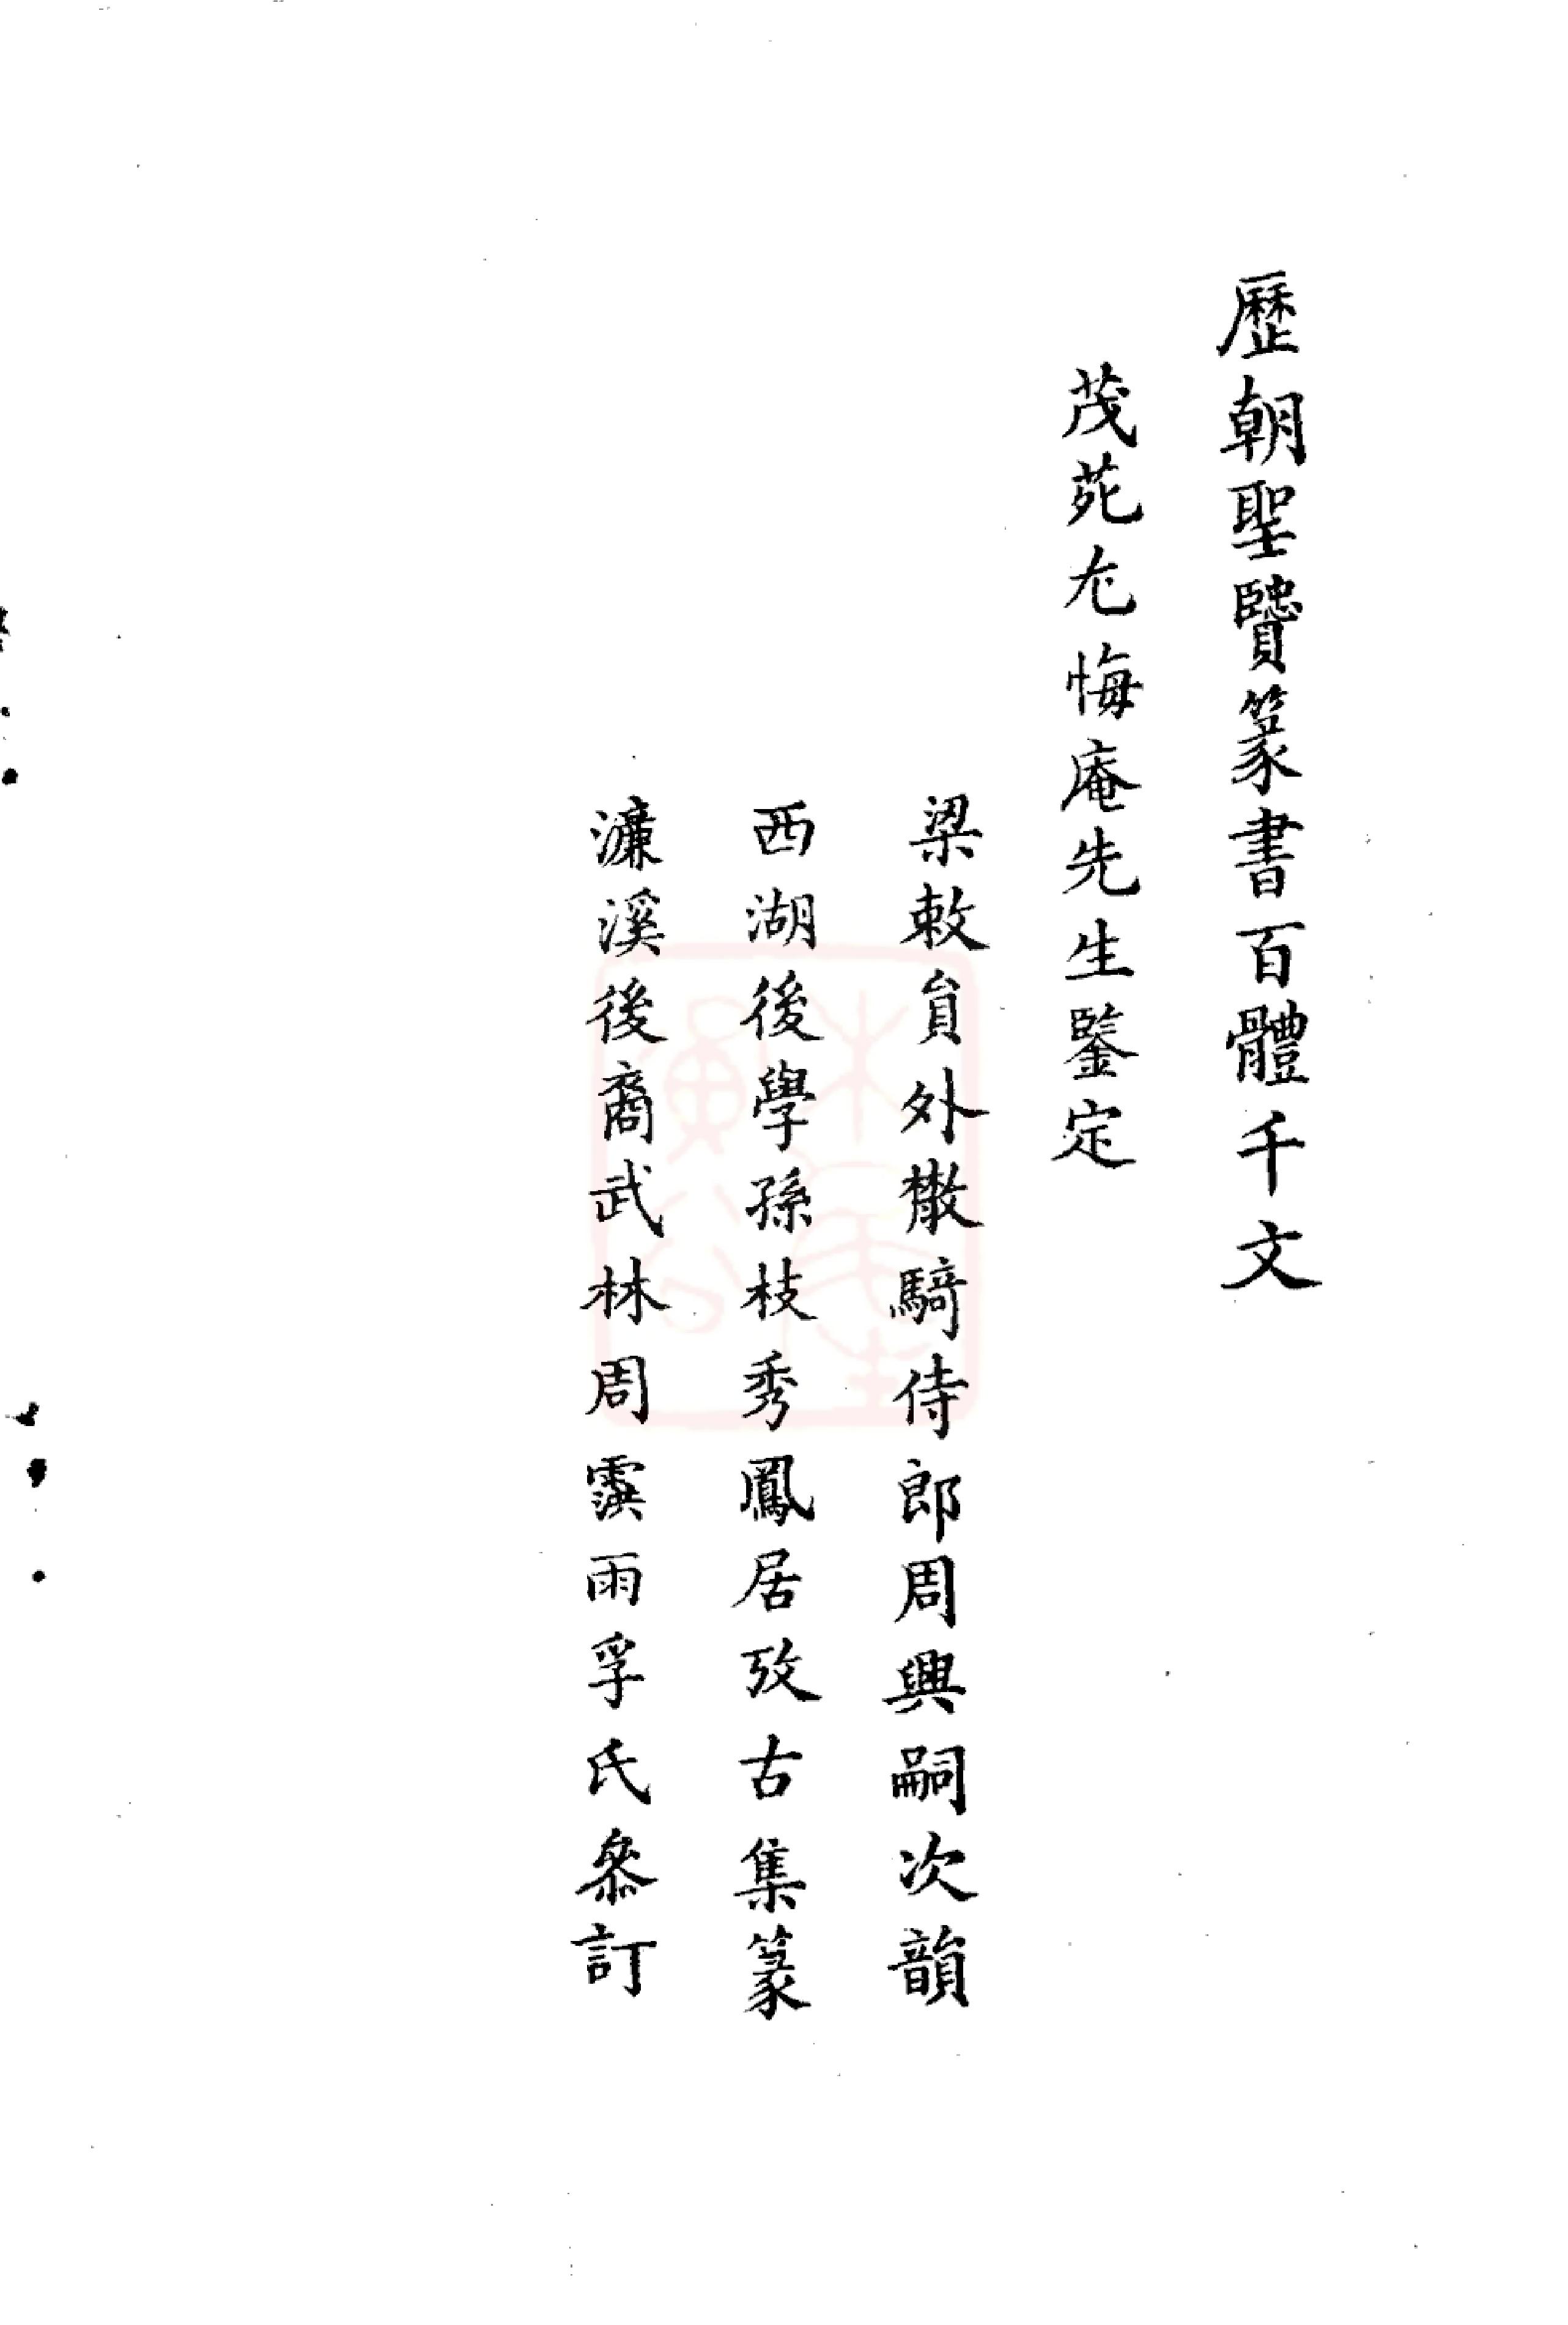 歷朝聖賢篆書百體千文
茂苑尤悔庵先生鑒定
梁敕員外散騎侍郎周興嗣次韻
西湖後學孫枝秀鳳居攷古集篆
濂溪後裔武林周霙雨孚氏參訂